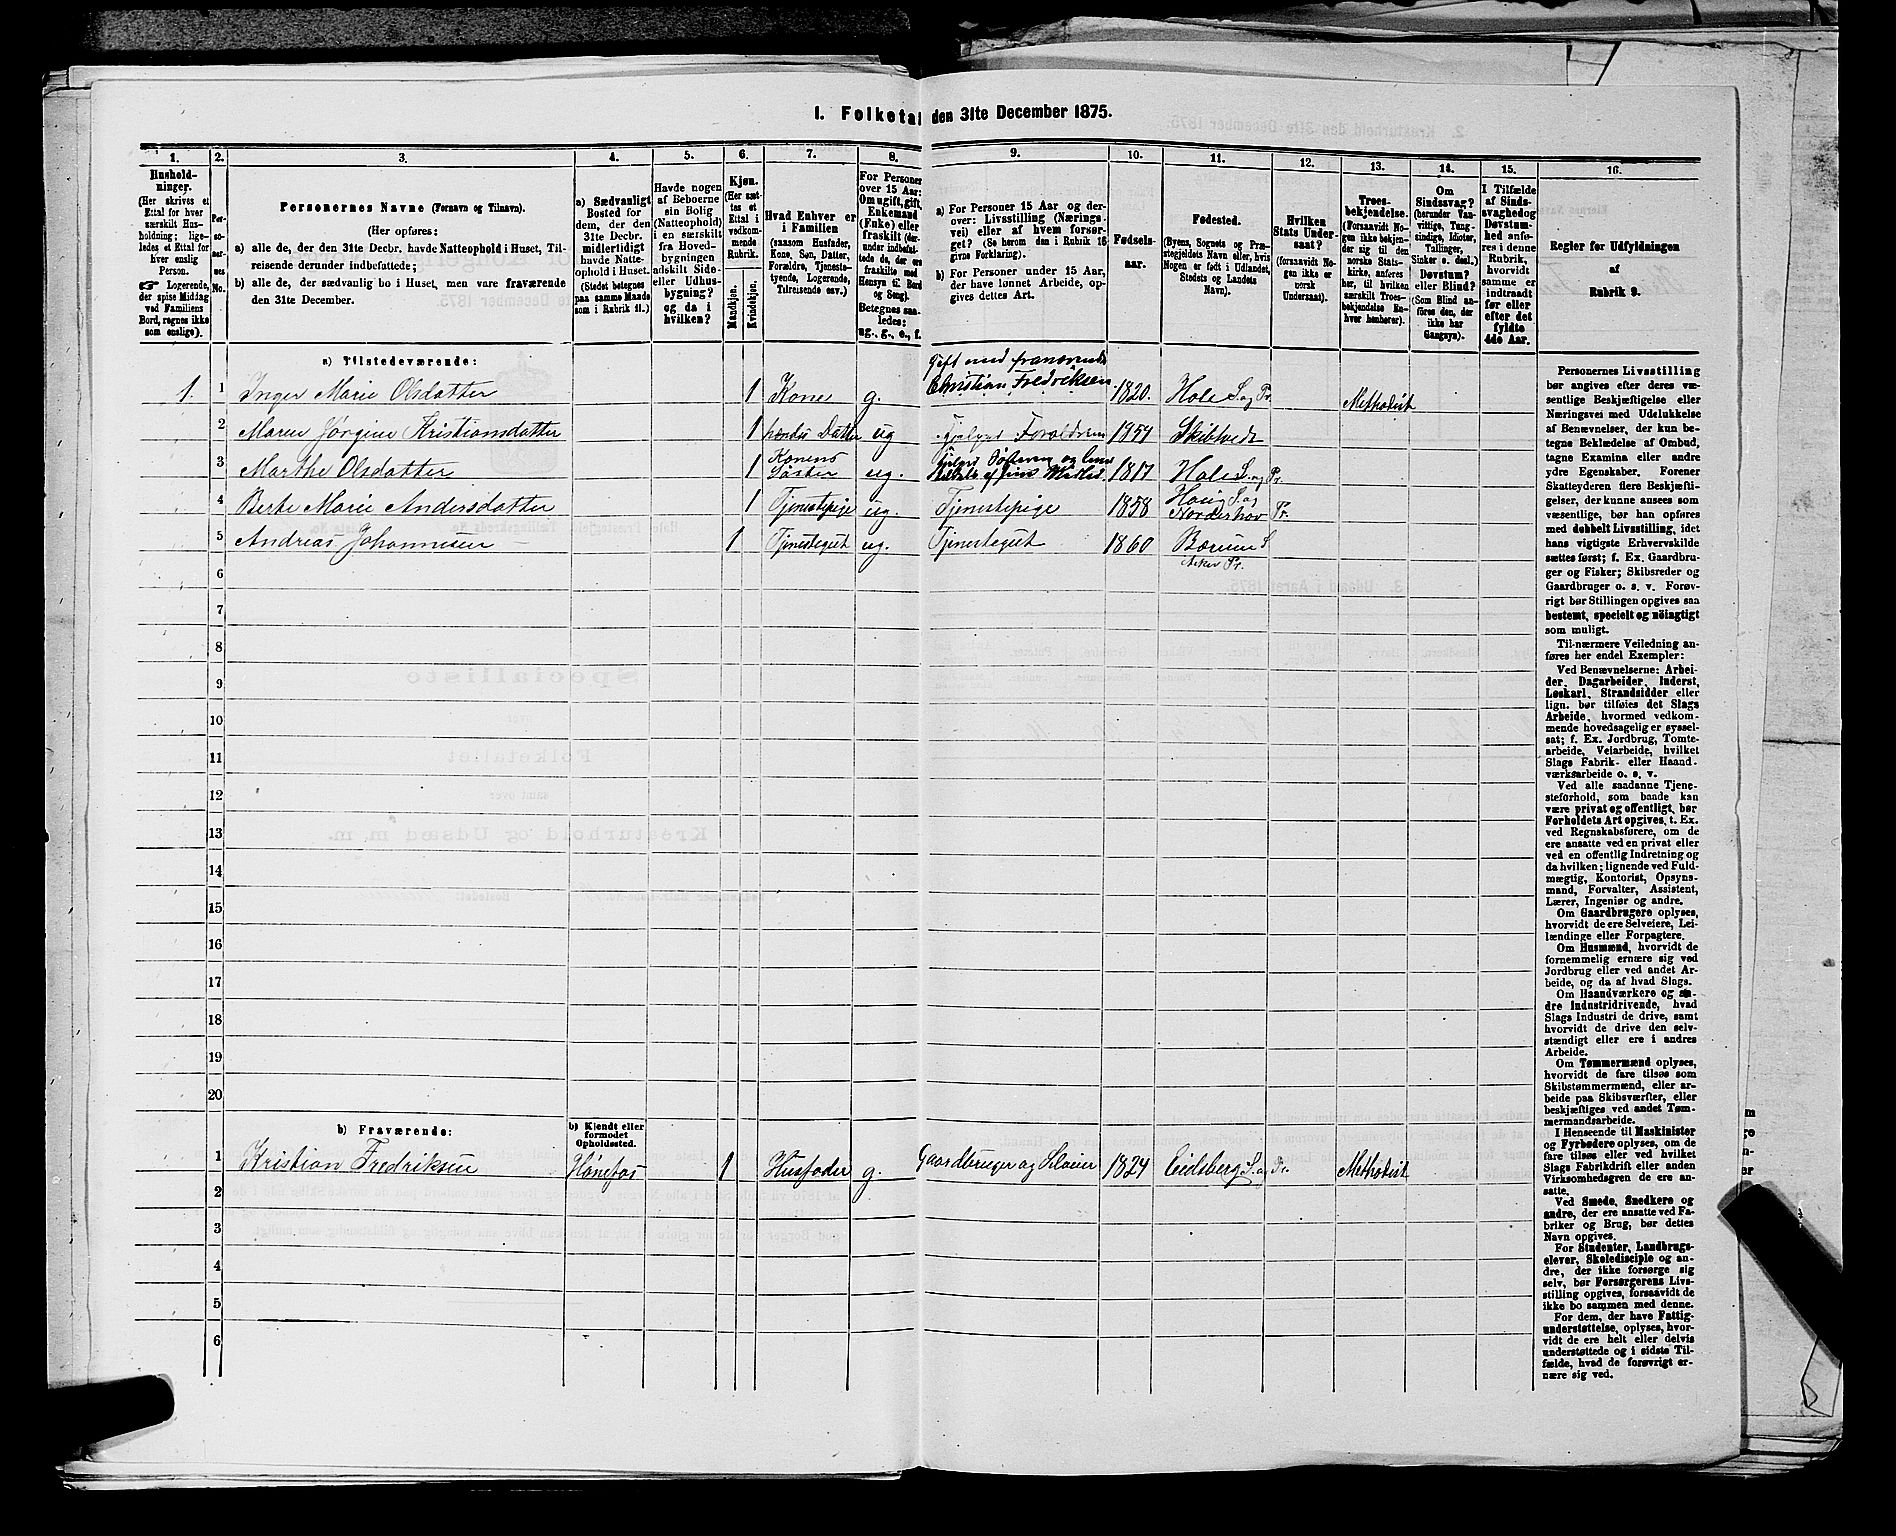 I. Folketal den 31te December 1875.
1.
2.
3.
4.
5.
6.
7.
8.
9.
10.
11.
12.
13.
14.
15.
16.
Hushold-
ninger.
(Her skrives et
Ettal for hver
særskilt Hus-
holdning; lige-
ledes et Ettal for
hver enslig
Person.
☞ Logerende,
der spise Middag
ved Familiens
Bord, regnes ikke
som enslige).
Per-
so-
ner-
nes
No.
Personernes Navne (Fornavn og Tilnavn).
(Her opføres:
a) alle de, der den 31te Decbr. havde Natteophold i Huset, Til-
reisende derunder indbefattede;
b) alle de, der sædvanlig bo i Huset, men vare fraværende
den 31te December.
a) Sædvanligt
Bosted for
dem, der den
31te Decbr.
midlertidigt
havde Natte-
ophold i Huset.
(Stedet betegnes
paa samme Maade
som i Rubrik 11.)
Havde nogen
af Beboerne
sin Bolig
(Natteophold)
i en særskilt
fra Hoved-
bygningen
adskilt Side-
eller Udhus-
bygning?
og da i
hvilken?
Kjøn.
(Her sæt-
tes et
Ettal i
vedkom-
mende
Rubrik.
Mandkjøn.
Kvindekjøn.
Hvad Enhver er
i Familien
(saasom Husfader,
Kone, Søn, Datter,
Forældre, Tjeneste-
tyende, Logerende,
Tilreisende osv.)
For Personer
over 15 Aar:
Om ugift, gift,
Enkemand
(Enke) eller
fraskilt (der-
under indbefat-
tede de, der ere
fraskilte med
Hensyn til Bord
og Seng).
Betegnes saa-
ledes:
ug., g., e., f.
a) For Personer 15 Aar og der-
over: Livsstilling (Nærings-
vei) eller af hvem forsør-
get? (Se herom den i Rubrik 16
givne Forklaring).
b) For Personer under 15 Aar,
der have lønnet Arbeide, op-
gives dettes Art.
Fødsels-
aar.
Fødested.
(Byens, Sognets og Præ-
stegjeldets Navn eller, hvis
Nogen er født i Udlandet,
Stedets og Landets
Navn).
Hvilken
Stats Under-
saat?
(forsaavidt No-
gen ikke er
norsk
Undersaat).
Troes-
bekjendelse.
(Forsaavidt No-
gen ikke bekjen-
der sig til den
norske Stats-
kirke, anføres
her, til hvilken
særskilt Troes-
bekjendelse En-
hver henhører).
Om
Sindssvag?
(herunder Van-
vittige, Tung-
sindige, Idioter,
Tallinger,
Sinker o. desl.)
Døvstum?
eller Blind?
(Som Blind an-
føres den, der
ikke har
Gangsyn).
I Tilfælde
af Sinds-
svaghed og
Døvstum-
hed anfø-
res i denne
Rubrik,
hvorvidt
samme er
indtraadt
før eller
efter det
fyldte
4de Aar.
Regler for Udfyldningen
af
Rubrik 9.
a) Tilstedeværende:
Gift med fraværende
1. 1 Inger Marie Olsdatter 1 Kone g. Christian Fredriksen 1820. Hole S. og Pr. Methodist
2 Maren Jørgine Kristiansdatter 1 hendes Datter ug Hjelper Forældrene 1854 Skibtvedt
3 Marthe Olsdatter 1 Konens Søster ug. 1817 Hole S. og Pr.
4 Berte Marie Andersdatter 1 Tjenestepige ug. Tjenestepige 1858 Houg S. og Norderhov Pr.
5 Andreas Johannesen 1 Tjenestegut ug. Tjenestegut 1860 Bærum S
Asker Pr.
6
7
8
9
10
11
12
13
14
15
16
17
18
19
20
b) Fraværende:
b) Kjendt eller
formodet
Opholdssted.
1 Kristian Fredriksen Hønefos 1 Husfader g. Gaardbruger og Selveier 1824 Eidsberg S. og Pr. Methodist
2
3
4
5
6
Personernes Livsstilling
bør angives efter deres væ-
sentlige Beskjæftigelse eller
Næringsvei med Udelukkelse
af Benævnelser, der kun be-
tegne Beklædelse af Ombud,
tagne Examina eller andre
ydre Egenskaber. Forener
Skatteyderen flere Beskjæfti-
gelser, der kunne ansees som
væsentlige, bør han opføres
med dobbelt Livsstilling, idet
hans vigtigste Erhvervskilde
sættes først; f. Ex. Gaardbru-
ger og Fisker; Skibsreder og
Gaardbruger o. s. v. Forøv-
rigt bør Stillingen opgives saa
bestemt, specielt og nöiagtigt
som muligt.
Til nærmere Veiledning an-
føres her endel Exempler:
Ved Benævnelserne: Arbei-
der, Dagarbeider, Inderst,
Løskarl, Strandsidder eller
lign. bør tilføies det Slags
Arbeide, hvormed vedkom-
mende hovedsagelig er syssel-
sat; f. Ex. Jordbrug, Tomte-
arbeide, Veiarbeide, hvilket
Slags Fabrik- eller Haand-
værksarbeide o. s. v.
Ved alle saadanne Tjene-
steforhold, som baade kan
være privat og offentligt, bør
Forholdets Art opgives, t. Ex.
ved Regnskabsførere, om de
ere ansatte ved en privat eller
ved en offentlig Indretning og
da hvilken; lignende ved Fuld-
mægtig, Kontorist, Opsyns-
mand, Forvalter, Assistent,
Lærer, Ingeniør og andre.
Om Gaardbrugere oplyses,
hvorvidt de ere Selveiere, Lei-
lændinge eller Forpagtere.
Om Husmænd, hvorvidt de
fornemmelig ernære sig ved
Jordbrug eller ved andet Ar-
beide, og da af hvad Slags.
Om Haandværkere og an-
dre Industridrivende, hvad
Slags Industri de drive, samt
hvorvidt de drive den selv-
stændigt eller ere i andres
Arbeide.
Om Tømmermænd oplyses,
hvorvidt de fare tilsøs som
Skibstømmermænd, eller ar-
beide paa Skibsværfter, eller
beskjæftiges ved andet Tøm-
mermandsarbeide.
I Henseende til Maskinister
og Fyrbødere oplyses, om de
fare tilsøs eller ved hvilket
Slags Fabrikdrift eller anden
Virksomhedsgren de ere an-
satte.
Ved Smede, Snedkere og
andre, der ere ansatte ved Fa-
briker og Brug, bør dettes
Navn opgives.
For Studenter, Landbrugs-
elever, Skoledisciple og an-
dre, der ikke forsørge sig
selv, bør Forsørgerens Livs-
stilling opgives, forsaavidt de
ikke bo sammen med denne.
For dem, der have Fattig-
understøttelse, oplyses, hvor-
vidt de ere helt eller delvis
understøttede og i sidste Til-
fælde, hvad de forøvrigt er-
nære sig ved.